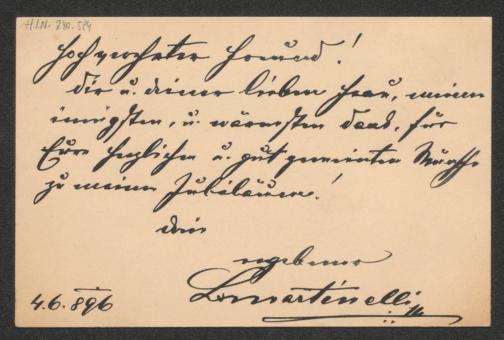 H.I.N. 240.584
Hochverehrter Freund!
Dir u. deiner lieben Frau, meinen
innigsten, u. wärmsten Dank, für
Eure herzlichen u. gut gemeinten Wünsche
zu meinem Jubiläum!
Dein
ergebener
LMartinelli
4.6.896